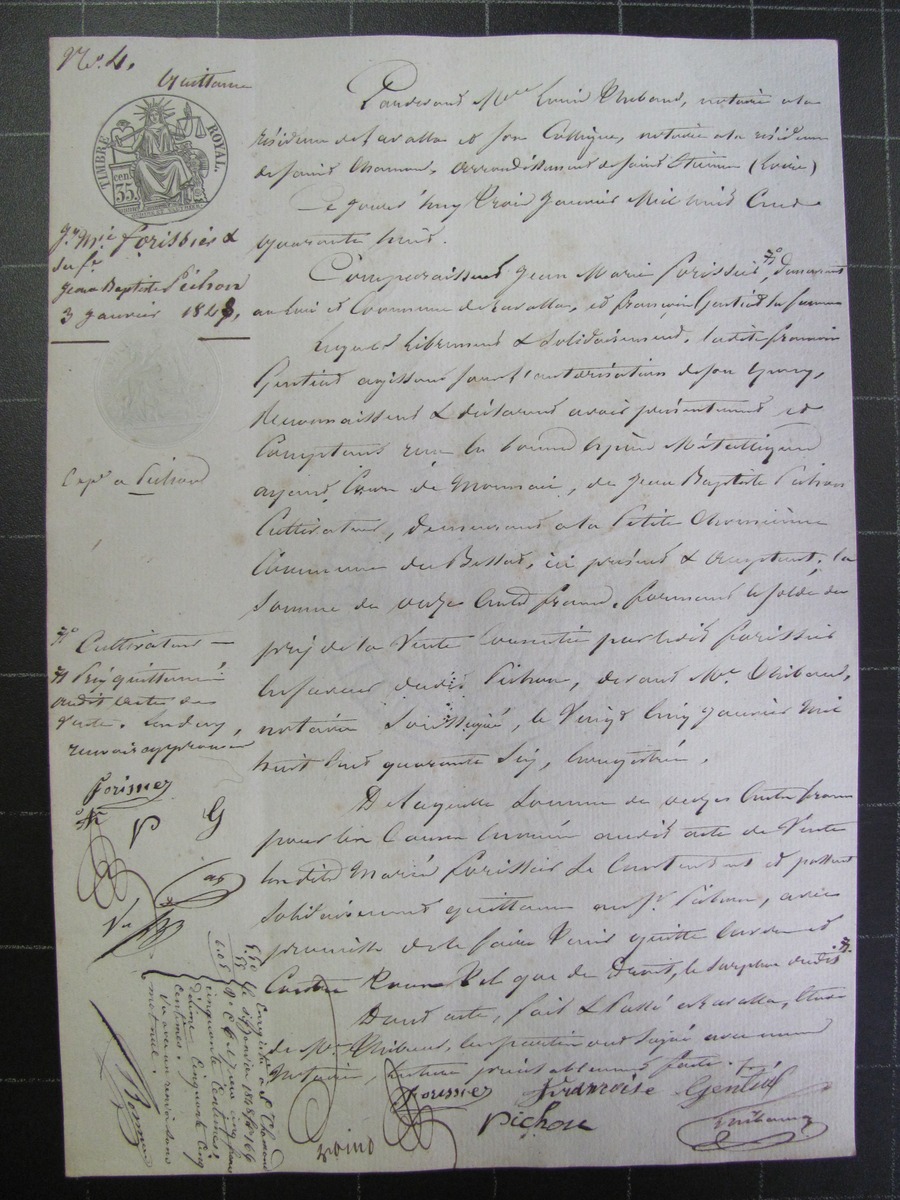 No. 4.
Quittance
TIMBRE ROYAL.
35 cent
Jn Mie Forissier &
sa fe
Jean Baptiste Pichon
3 janvier 1848,
Expn a Pichon
Pardevant Me Louis Thibaud, notaire a la
résidence de Lavalla et son Collègue, notaire a la résidence
de Saint Chamond, arrondissement de Saint Etienne (Loire)
Ce jourd'huy trois Janvier Mil huit Cent
quarante huit.
Comparaissent Jean Marie Forissier, demeurant
au lieu et Commune de Lavalla, et françoise Gentiat sa femme
lesquels librement & solidairement, ladite françoise
Gentiat agissant sous l'autorisation de son mary,
Reconnaissent & déclarent avoir présentement et
Comptant reçu en bonnes espèces Métalliques
ayant Cours de Monnaie, de Jean Baptiste Pichon
Cultivateur, demeurant a la Petite
Commune du Bessat, ici présent & acceptant, la
Somme de onze Cents francs, formant le solde du
prix de la Vente Consentie par ledit Forissier
en faveur dudit Pichon, devant Me Thibaud,
notaire Soussigné, le Vingt Cinq Janvier mil
huit Cent quarante Six, Enregistré.
De laquelle Somme de onze Cents francs
pour les Causes énoncées audit acte de Vente
les dits Mariés Forissier se Contentent et passent
solidairement quittance au Sr Pichon, avec
promesse de le faire tenir quitte envers et
Contre tous tel que de Droit, le surplus dudit
Dont acte, fait & Passé a Lavalla, Etude
de Me Thibaud, les parties ont signé avec nous
Notaires, lecture préalablement faite.
Cultivateur
Prix quittancé
audit acte de
Vente. Les deux
renvois approuvés
Forissier
P G
Forissier
Françoise Gentiat
Pichon
Thibaud
Enregistré a St Chamond
cinq francs
cinquante Centimes,
décime Cinquante Cinq
Centimes.